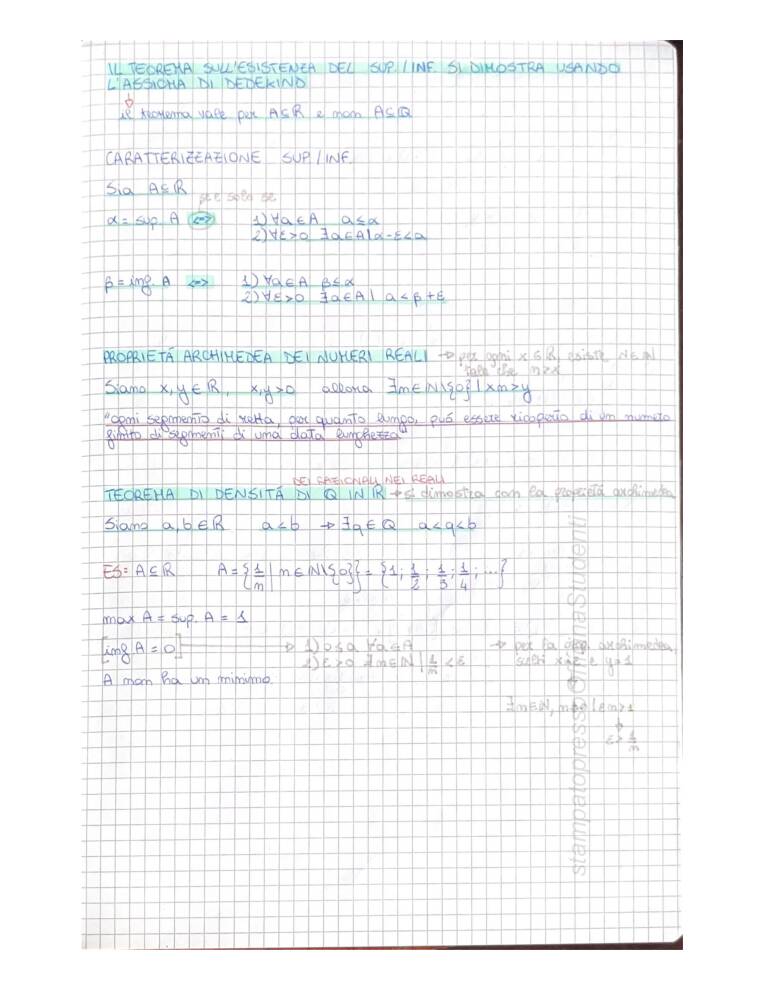 IL TEOREMA SULL'ESISTENZA DEL SUP./INF. SI DIMOSTRA USANDO
L'ASSIOMA DI DEDEKIND
il teorema vale per A⊆R e non A⊆Q
CARATTERIZZAZIONE SUP./INF.
Sia A⊆R
se e solo se
α = sup. A <=> 1) ∀a∈A a≤α
2) ∀ε>0 ∃a∈A | α-ε<a
β = inf. A <=> 1) ∀a∈A β≤α
2) ∀ε>0 ∃a∈A | a<β+ε
PROPRIETÁ ARCHIMEDEA DEI NUMERI REALI → per ogni x∈R esiste N∈N
tale che n>x
Siano x,y∈R, x,y>0 allora ∃n∈N\{0} | xn>y
"ogni segmento di retta, per quanto lungo, puó essere ricoperto di un numero
finito di segmenti di una data lunghezza"
DEI RAZIONALI NEI REALI
TEOREMA DI DENSITÁ DI Q IN R → si dimostra con la proprietá archimedea
Siano a,b∈R a<b → ∃q∈Q a<q<b
ES: A⊆R A={1/n | n∈N\{0}} = {1; 1/2; 1/3; 1/4; ...}
max A = sup. A = 1
[inf A = 0] → 1) 0≤a ∀a∈A → per la archimedea,
2) ε>0 ∃n∈N | 1/n <ε e y=1
A non ha un minimo.
∃n∈N, | εn>1
ε> 1/n